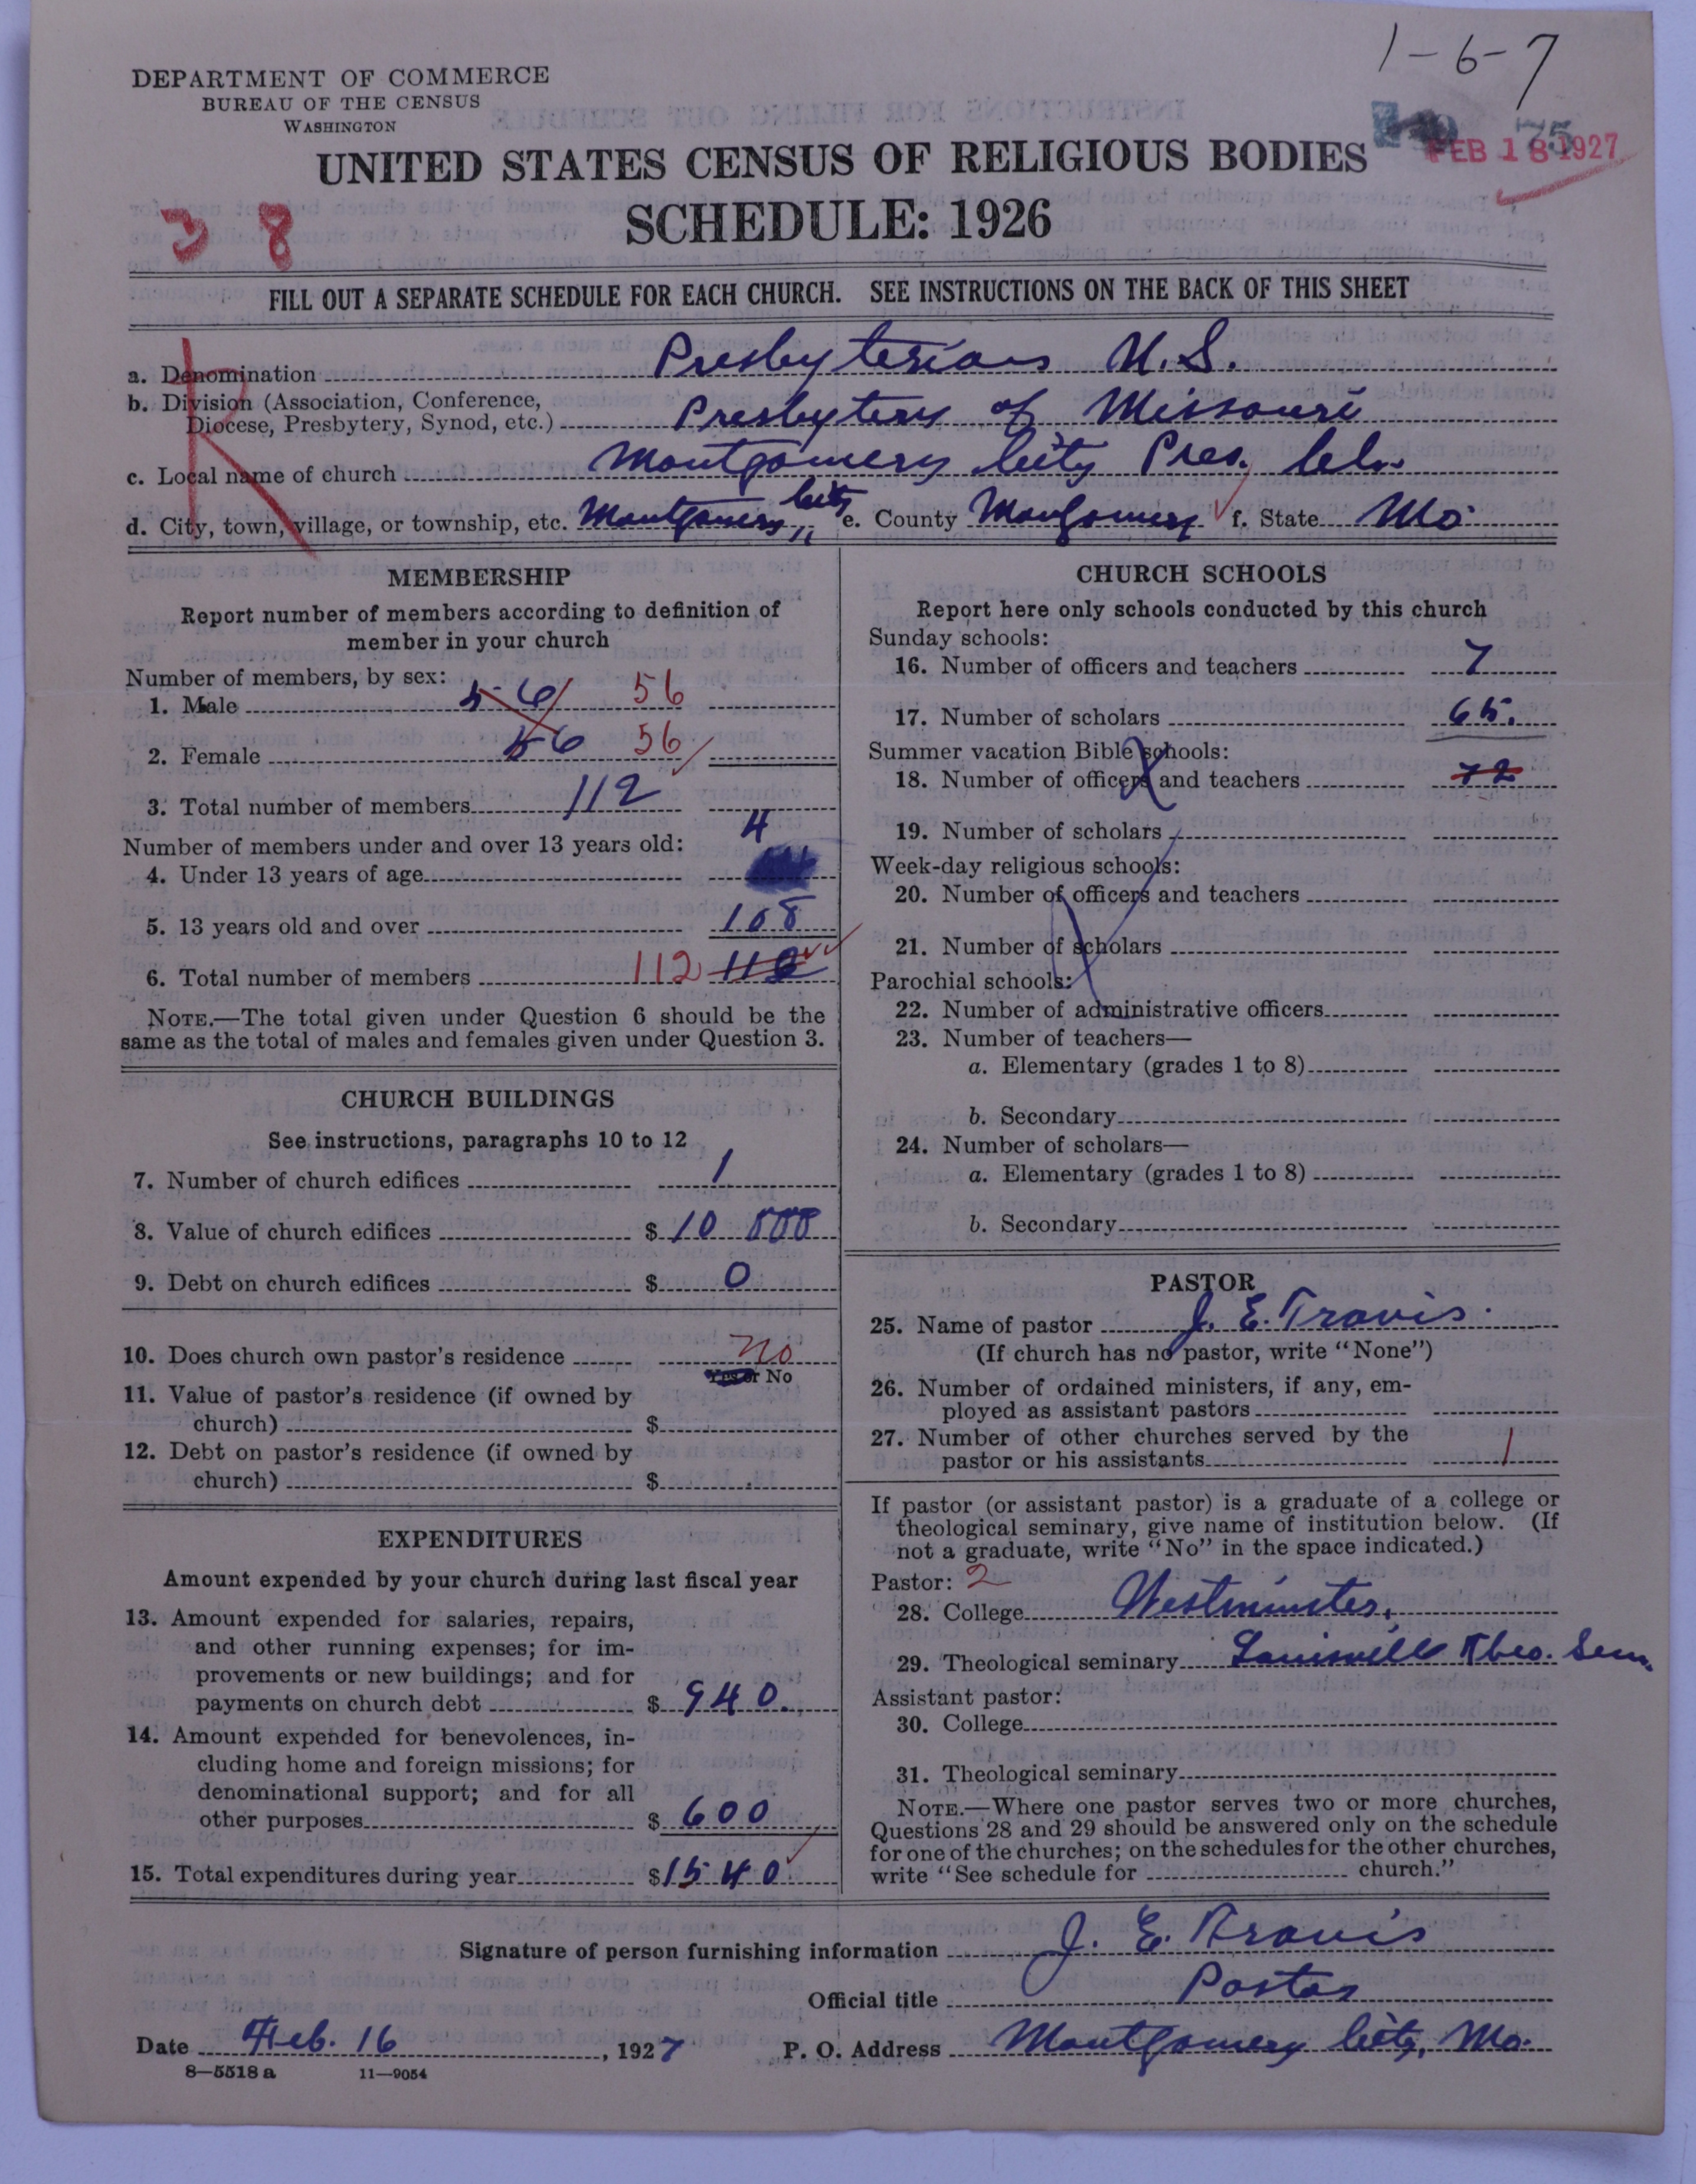 1-6-7
DEPARTMENT OF COMMERCE
BUREAU OF THE CENSUS
WASHINGTON
FEB 18 1927
UNITED STATES CENSUS OF RELIGIOUS BODIES
SCHEDULE: 1926
3 8
FILL OUT A SEPARATE SCHEDULE FOR EACH CHURCH. SEE INSTRUCTIONS ON THE BACK OF THIS SHEET
R
a. Denomination Presbyterians U.S.
b. Division (Association, Conference,
Diocese, Presbytery, Synod, etc.) Presbytery of Missouri
c. Local name of church Montgomery City Pres. Ch.
d. City, town, village, or township, etc. Montgomery City e. County Montgomery f. State Mo
MEMBERSHIP
Report number of members according to definition of
member in your church
Number of members, by sex:
1. Male 56 56
2. Female 56 56
3. Total number of members 112
Number of members under and over 13 years old:
4. Under 13 years of age 4
5. 13 years old and over 108
6. Total number of members 112
NOTE.—The total given under Question 6 should be the
same as the total of males and females given under Question 3.
CHURCH BUILDINGS
See instructions, paragraphs 10 to 12
7. Number of church edifices 1
8. Value of church edifices $ 10 000
9. Debt on church edifices $ 0
10. Does church own pastor's residence no
Yes or No
11. Value of pastor's residence (if owned by
church) $
12. Debt on pastor's residence (if owned by
church) $
EXPENDITURES
Amount expended by your church during last fiscal year
13. Amount expended for salaries, repairs,
and other running expenses; for im-
provements or new buildings; and for
payments on church debt $ 940.
14. Amount expended for benevolences, in-
cluding home and foreign missions; for
denominational support; and for all
other purposes $ 600
15. Total expenditures during year $ 1540
CHURCH SCHOOLS
Report here only schools conducted by this church
Sunday schools:
16. Number of officers and teachers 7
17. Number of scholars 65.
Summer vacation Bible schools:
18. Number of officers and teachers 72
19. Number of scholars
Week-day religious schools:
20. Number of officers and teachers
21. Number of scholars
Parochial schools:
22. Number of administrative officers
23. Number of teachers—
a. Elementary (grades 1 to 8)
b. Secondary
24. Number of scholars—
a. Elementary (grades 1 to 8)
b. Secondary
PASTOR
25. Name of pastor J. E. Travis.
(If church has no pastor, write "None")
26. Number of ordained ministers, if any, em-
ployed as assistant pastors
27. Number of other churches served by the
pastor or his assistants 1
If pastor (or assistant pastor) is a graduate of a college or
theological seminary, give name of institution below. (If
not a graduate, write "No" in the space indicated.)
Pastor: 2
28. College Westminster.
29. Theological seminary Louisville Theo. Sem.
Assistant pastor:
30. College
31. Theological seminary
NOTE.—Where one pastor serves two or more churches,
Questions 28 and 29 should be answered only on the schedule
for one of the churches; on the schedules for the other churches,
write "See schedule for church."
Signature of person furnishing information J. E. Travis
Official title Pastor
Date Feb. 16, 1927 P. O. Address Montgomery City, Mo.
8—5518 a 11—9054